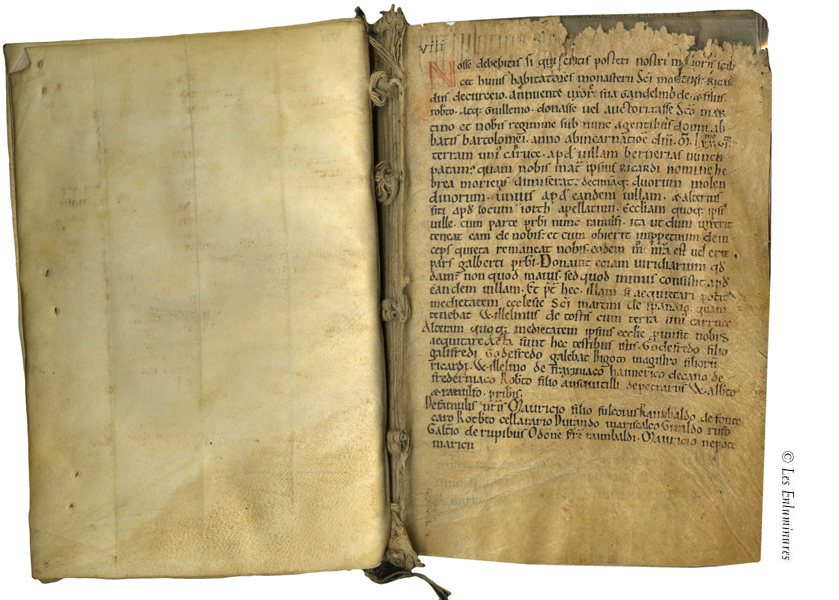 viii
Nosse debebitis si qui eritis posteri nostri maioris
cet huius habitatores monasterii Sci martini
dus decurceio. annuente uxor sua Gandelmode. & filiis
rotbto. atq; Guillemo. donasse vel auctorizasse Sco mar
tino et nobis regimine sub nunc agentibus domni ab
batis bartolomei. anno ab incarnatione dni.
terram uni carruce. apd villam bernerias nuncu
patam; quam nobis mat ipsius Ricardi nomine he
brea moriens dimiserat; decimaq; duorum molen
dinorum. unius apd eandem villam. & alterius
siti apd locum ioth apellatum. Eccliam quoq; ipsi
ville cum parte prbi nunc ranulfi. ita ut dum vixerit
teneat eam de nobis. et cum obierit inppetuum dein
ceps quieta remaneat nobis. eodem
pars galberti prbi. Donavit eciam viridiarium qd
dam non quod maius. sed quod minus consistit apd
eandem villam. Et pt hec. illam si adquietari potit
medietatem ecclesie Sci martini de quam
tenebat Willelmus de tostis cum terra uni carruce
Alteram quoq; medietatem ipsius ecclie pmisit nobis
adquitare. Acta sunt hec testibus istis. Godefredo filio
galifredi Godefredo galebat Bigoto magistro filiorum
ricardi. Willelmo de hannerico decano de
Robto filio & Walbto
& ranulfo. prbis.
De famulis nris Mauricio filio fulcoius Raimbaldo de fonte
caro Rotbto cellarario Durando mariscalco Giraldo rufo
Galtio de rupibus Odone fre raimbaldi. Mauricio nepote
maricii
© Les Enluminures